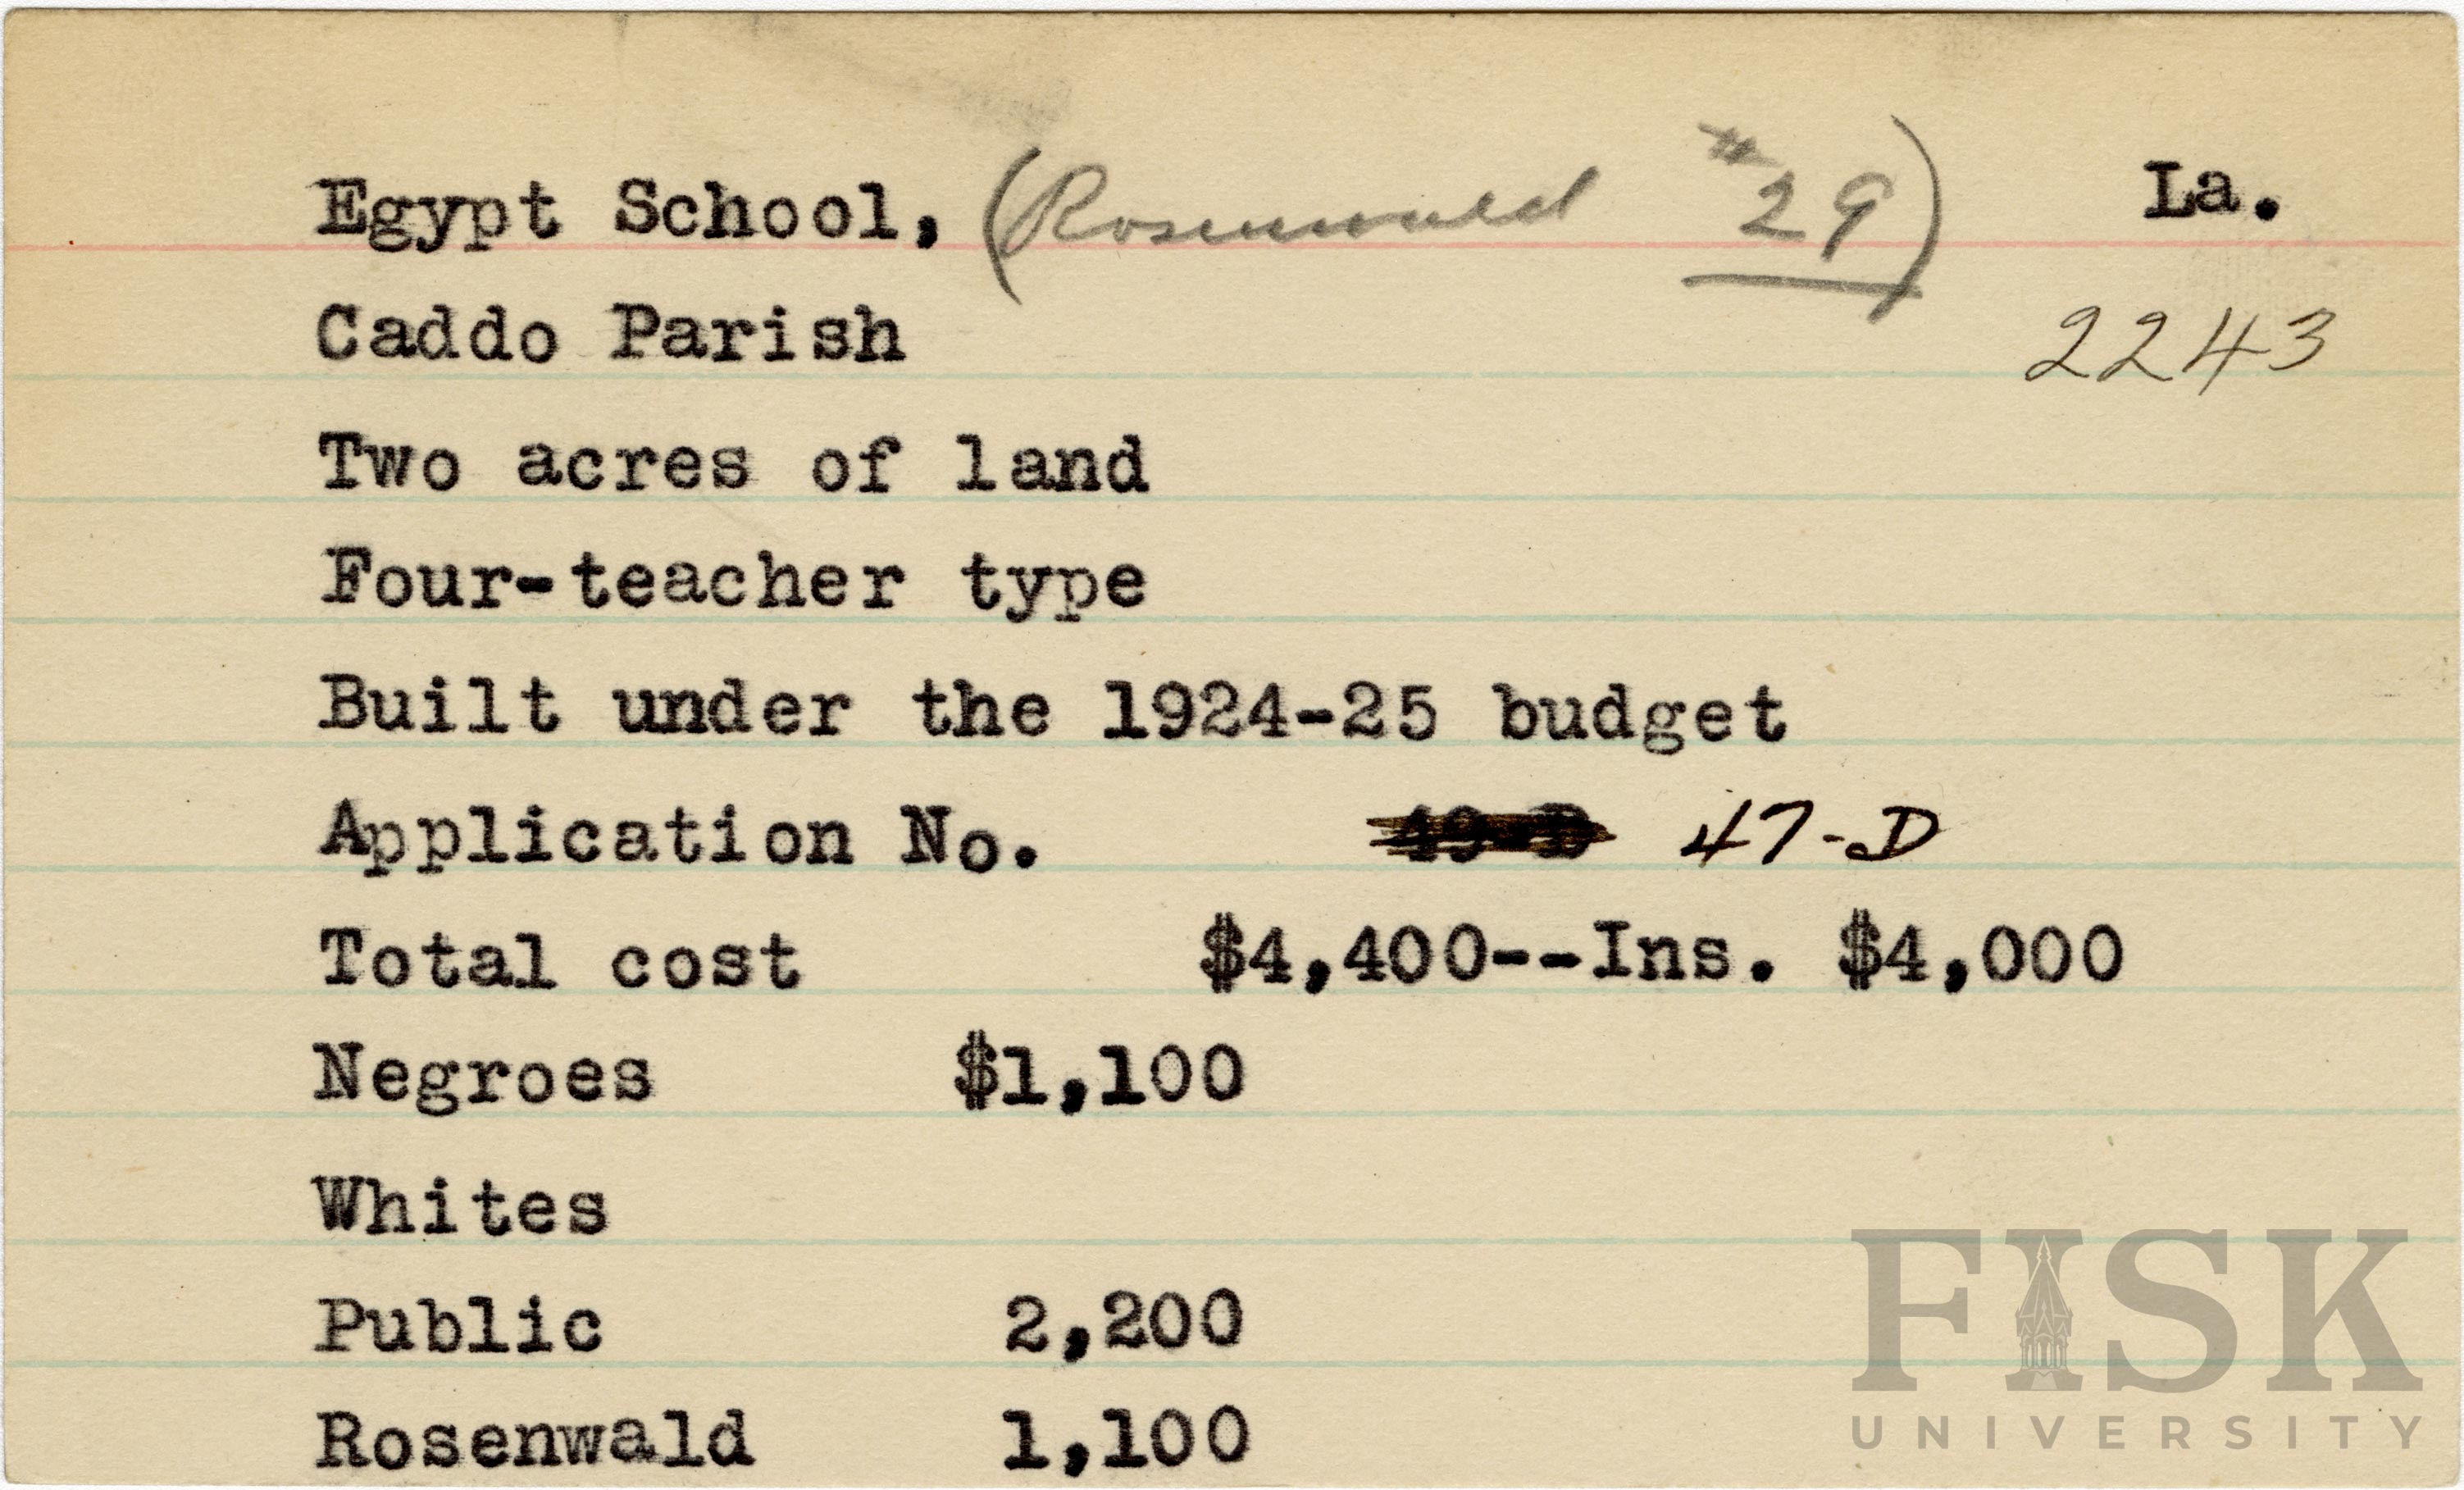 Egypt School, (Rosenwald #29) La.
Caddo Parish 2243
Two acres of land
Four-teacher type
Built under the 1924-25 budget
Application No. 47-D
Total cost $4,400--Ins. $4,000
Negroes $1,100
Whites
Public 2,200
Rosenwald 1,100
FISK
UNIVERSITY